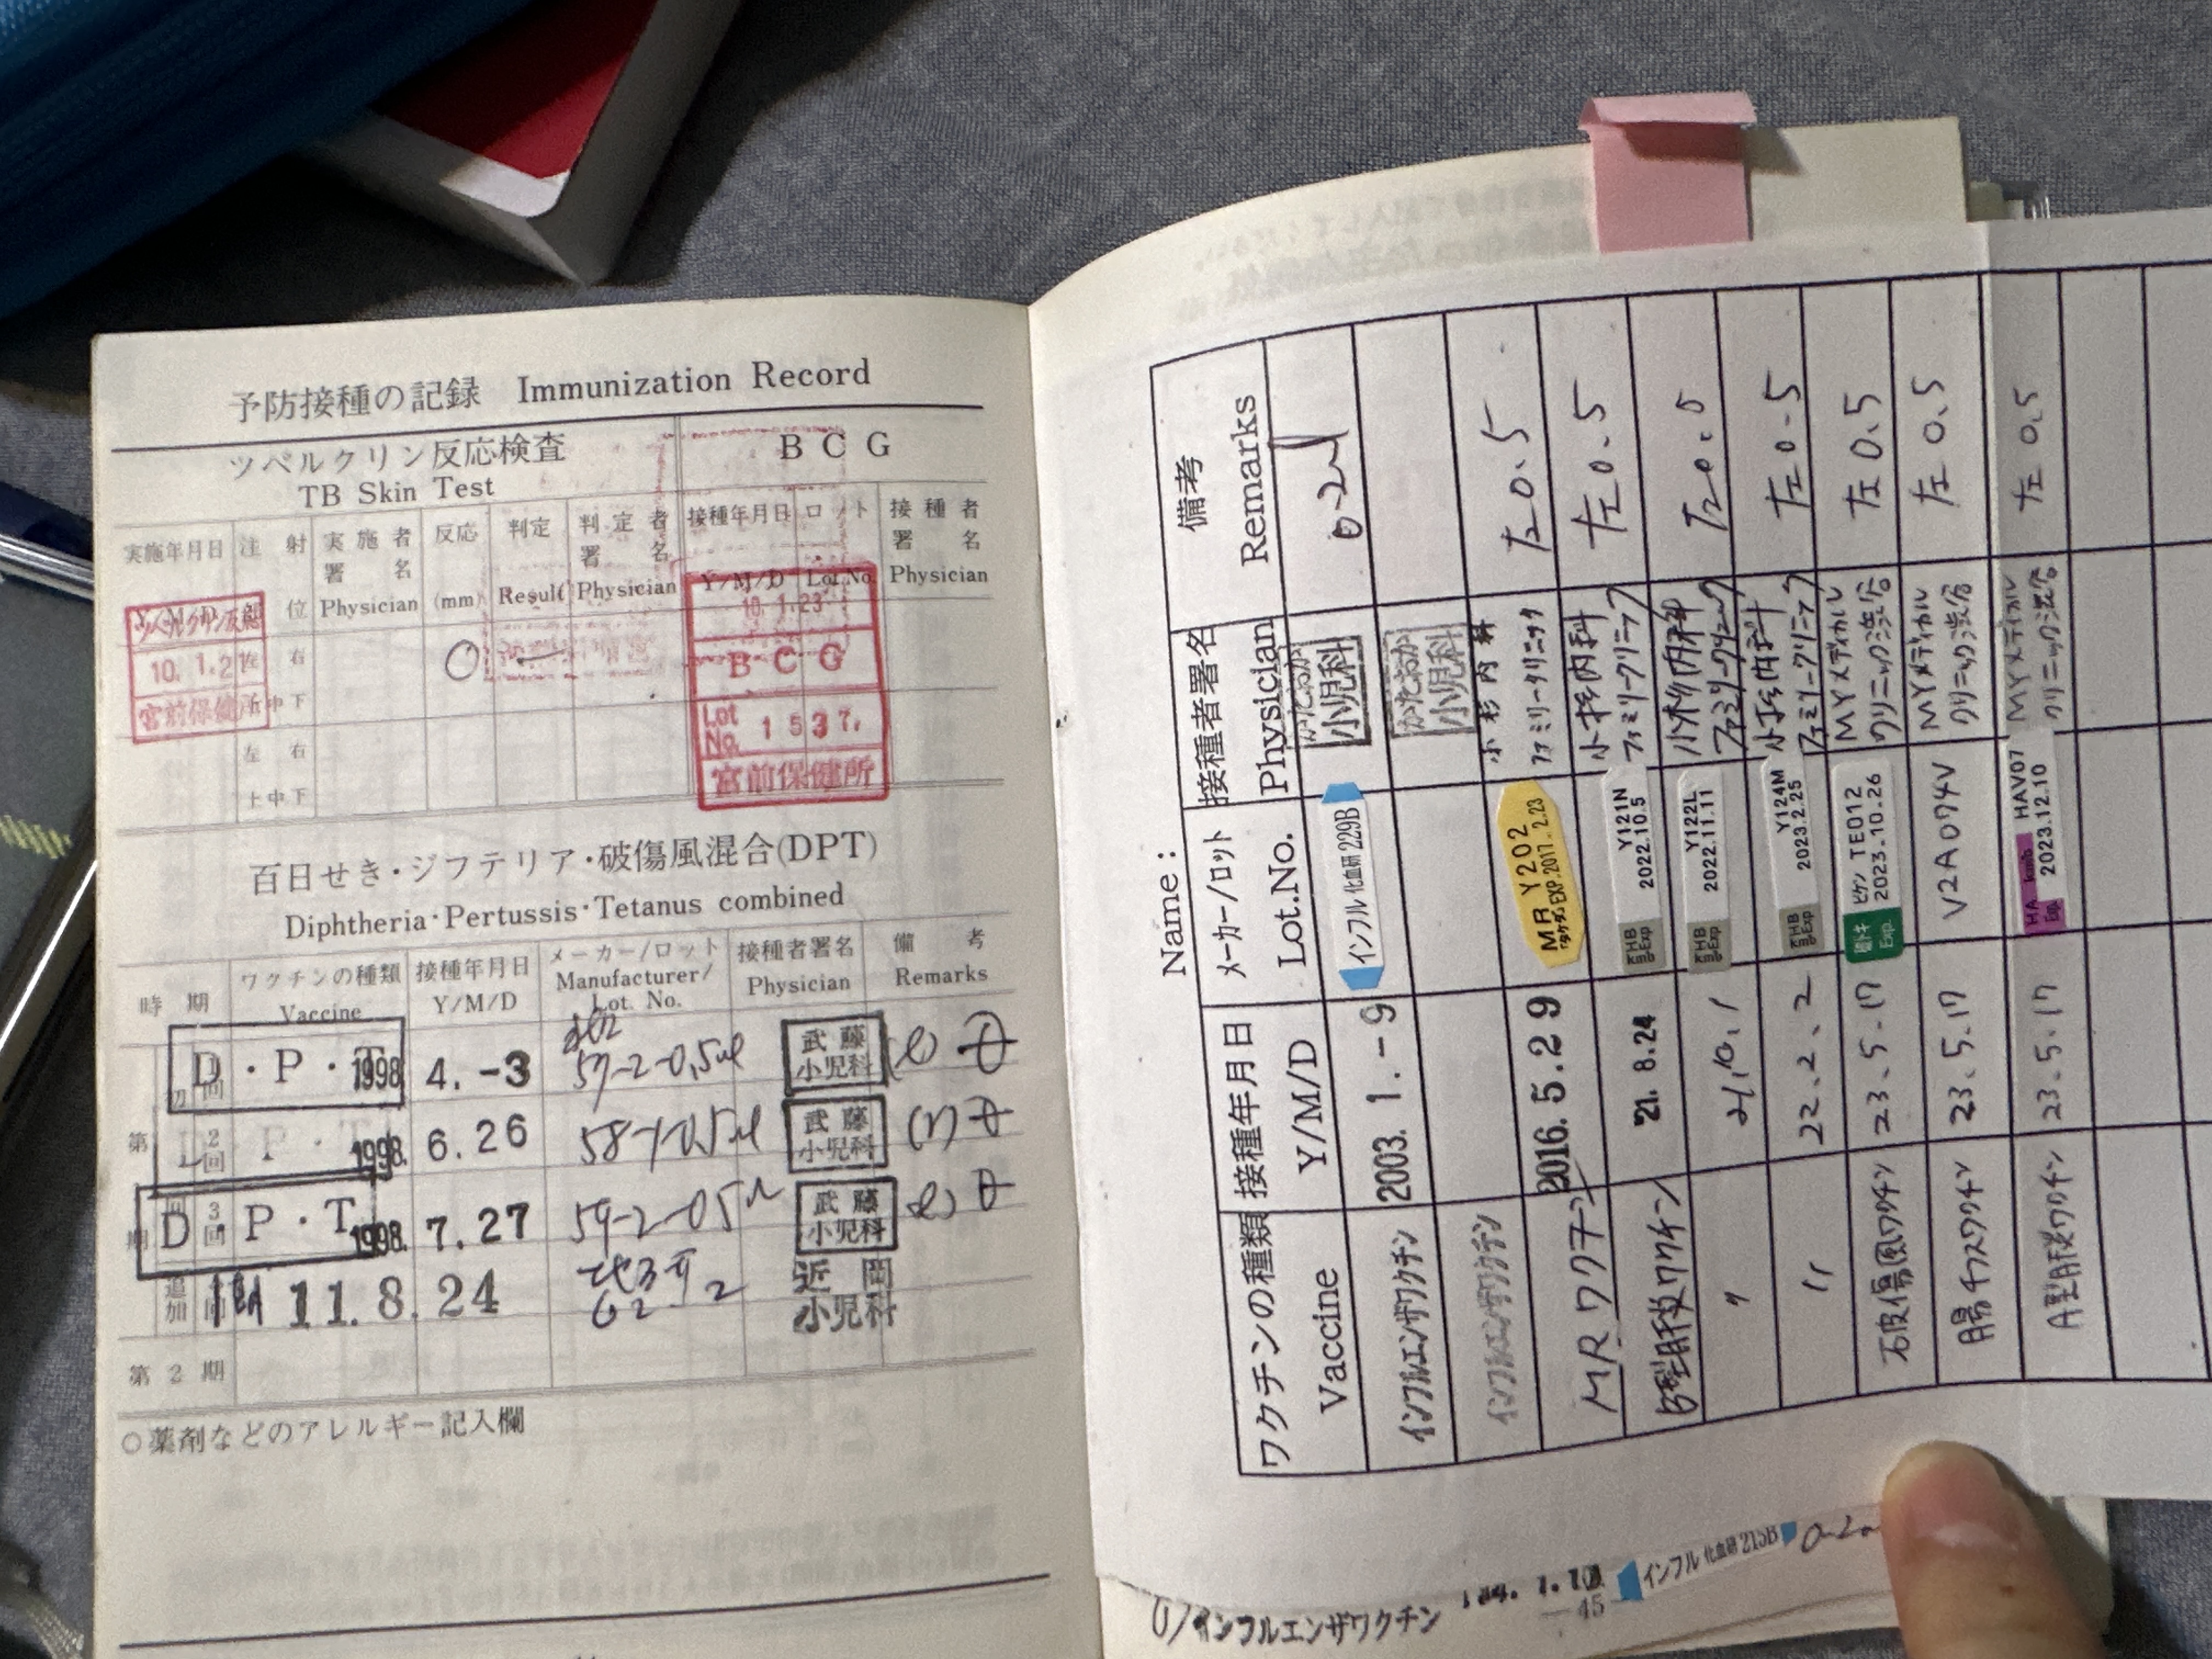 予防接種の記録 Immunization Record
ツベルクリン反応検査
TB Skin Test
BCG
実施年月日 注射 実施者 反応 判定 判定者 接種年月日 ロット 接種者
署名 署名 署名
位 Physician (mm) Result Physician Y/M/D Lot.No. Physician
ツベルクリン反応
10. 1.2
宮前保健所
右
中下
左 右
上中下
10.1.23
BCG
Lot No. 1537.
宮前保健所
百日せき・ジフテリア・破傷風混合(DPT)
Diphtheria・Pertussis・Tetanus combined
時期 ワクチンの種類 接種年月日 メーカー/ロット 接種者署名 備考
Vaccine Y/M/D Manufacturer/ Lot. No. Physician Remarks
D・P・T 1998 4.-3 57-2-0.5ml 武藤小児科
第 2回 1998. 6.26 武藤小児科
期 D・P・T 3回 1998. 7.27 59-2-0.5 武藤小児科
追加 11.8.24 62 小児科
第2期
○薬剤などのアレルギー記入欄
Name:
ワクチンの種類 接種年月日 メーカー/ロット 接種者署名 備考
Vaccine Y/M/D Lot.No. Physician Remarks
インフルエンザワクチン 2003. 1.-9 インフル 化血研 229B かたおか小児科
インフルエンザワクチン かたおか小児科
MRワクチン 2016. 5.29 MR Y202 「タケダ」EXP.2017.2.23 小杉内科ファミリークリニック 左0.5
B型肝炎ワクチン '21. 8.24 KHB Exp Y121N 2022.10.5 小杉内科ファミリークリニック 左0.5
〃 21.10.1 KHB Exp Y122L 2022.11.11 小杉内科ファミリークリニック 左0.5
〃 22.2.2 KHB Exp Y124M 2023.2.25 小杉内科ファミリークリニック 左0.5
破傷風ワクチン 23.5.17 Exp. ビケン TE012 2023.10.26 MYメディカルクリニック渋谷 左0.5
腸チフスワクチン 23.5.17 V2A074V MYメディカルクリニック渋谷 左0.5
A型肝炎ワクチン 23.5.17 HA Exp. HAV07 2023.12.10 MYメディカルクリニック渋谷 左0.5
インフルエンザワクチン インフル 化血研 215B
45